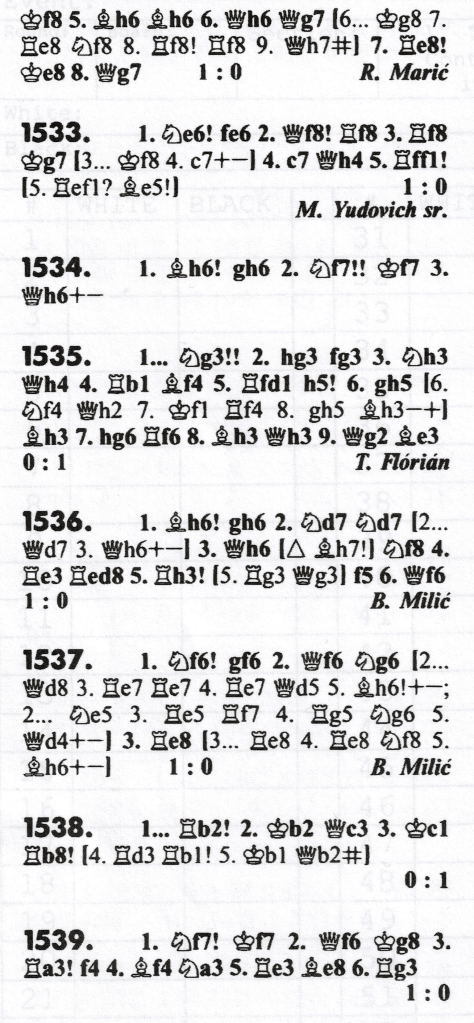 ♔f8 5. ♗h6 ♗h6 6. ♕h6 ♕g7 [6... ♔g8 7.
♖e8 ♘f8 8. ♖f8! ♖f8 9. ♕h7#] 7. ♖e8!
♔e8 8. ♕g7 1 : 0 R. Marić
1533. 1. ♘e6! fe6 2. ♕f8! ♖f8 3. ♖f8
♔g7 [3... ♔f8 4. c7+−] 4. c7 ♕h4 5. ♖ff1!
[5. ♖ef1? ♗e5!] 1 : 0
M. Yudovich sr.
1534. 1. ♗h6! gh6 2. ♘f7!! ♔f7 3.
♕h6+−
1535. 1... ♘g3!! 2. hg3 fg3 3. ♘h3
♕h4 4. ♖b1 ♗f4 5. ♖fd1 h5! 6. gh5 [6.
♘f4 ♕h2 7. ♔f1 ♖f4 8. gh5 ♗h3−+]
♗h3 7. hg6 ♖f6 8. ♗h3 ♕h3 9. ♕g2 ♗e3
0 : 1 T. Flórián
1536. 1. ♗h6! gh6 2. ♘d7 ♘d7 [2...
♕d7 3. ♕h6+−] 3. ♕h6 [△ ♗h7!] ♘f8 4.
♖e3 ♖ed8 5. ♖h3! [5. ♖g3 ♕g3] f5 6. ♕f6
1 : 0 B. Milić
1537. 1. ♘f6! gf6 2. ♕f6 ♘g6 [2...
♕d8 3. ♖e7 ♖e7 4. ♖e7 ♕d5 5. ♗h6!+−;
2... ♘e5 3. ♖e5 ♖f7 4. ♖g5 ♘g6 5.
♕d4+−] 3. ♖e8 [3... ♖e8 4. ♖e8 ♘f8 5.
♗h6+−] 1 : 0 B. Milić
1538. 1... ♖b2! 2. ♔b2 ♕c3 3. ♔c1
♖b8! [4. ♖d3 ♖b1! 5. ♔b1 ♕b2#]
0 : 1
1539. 1. ♘f7! ♔f7 2. ♕f6 ♔g8 3.
♖a3! f4 4. ♗f4 ♘a3 5. ♖e3 ♗e8 6. ♖g3
1 : 0